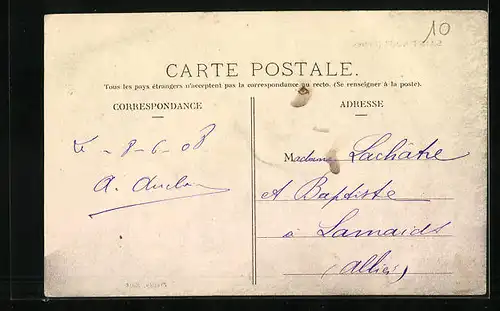 10
CARTE POSTALE.
Tous les pays étrangers n'acceptent pas la correspondance au recto. (Se renseigner à la poste).
CORRESPONDANCE
ADRESSE
Le 8-6-08
A.
Madame Lachâtre
et Baptiste
à Lamaids
(Allier)